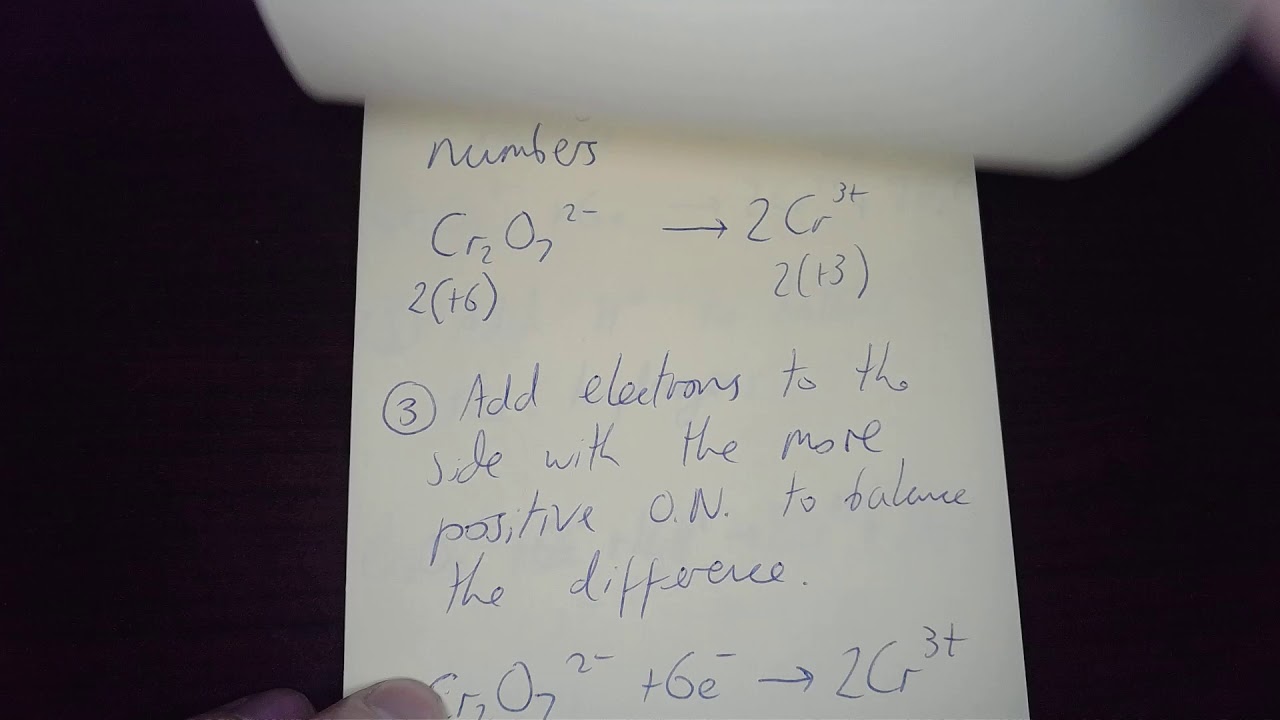 numbers
Cr₂O₇²⁻ → 2Cr³⁺
2(+6) 2(+3)
③ Add electrons to the
side with the more
positive O.N. to balance
the difference.
Cr₂O₇²⁻ +6e⁻ → 2Cr³⁺